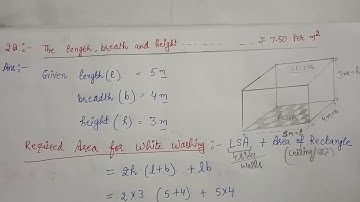 2Q:- The length, breath and height ............ ₹ 7.50 per m²
Ans:- Given length (l) = 5m
breadth (b) = 4m
height (h) = 3m
CEILING
FLOOR
3m=h
4m=b
5m=l
Required Area for White Washing :- LSA + Area of Rectangle
walls (ceiling)
= 2h (l+b) + lb
= 2×3 (5+4) + 5×4